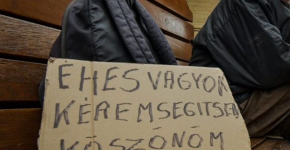 ÉHES VAGYOK
KÉREM SEGÍTSEN
KÖSZÖNÖM